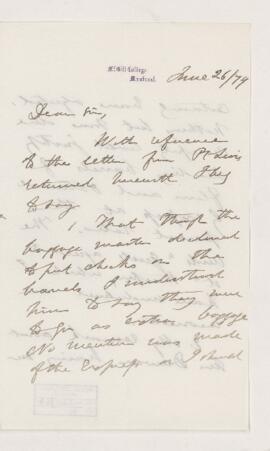 McGill College
Montreal.
June 26/79
Dear Sir,
With reference
to the letter from Pt Levis
returned herewith I beg
to say
1. That though the
baggage master declined
to put checks on the
barrels I understood
him to say they were
to go as extra baggage
No mention was made
of the Express